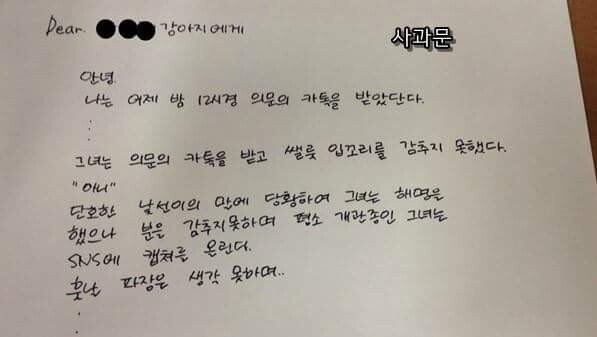 Dear. ●●● 강아지에게
사과문
안녕.
나는 어제 밤 12시경 의문의 카톡을 받았단다.
:
:
그녀는 의문의 카톡을 받고 쌜룩 입꼬리를 감추지 못했다.
"아니"
단호한 낯선이의 말에 당황하여 그녀는 해명을
했으나 분을 감추지못하며 평소 개관종인 그녀는
SNS에 캡쳐를 올린다.
훗날 파장은 생각 못하며..
:
: